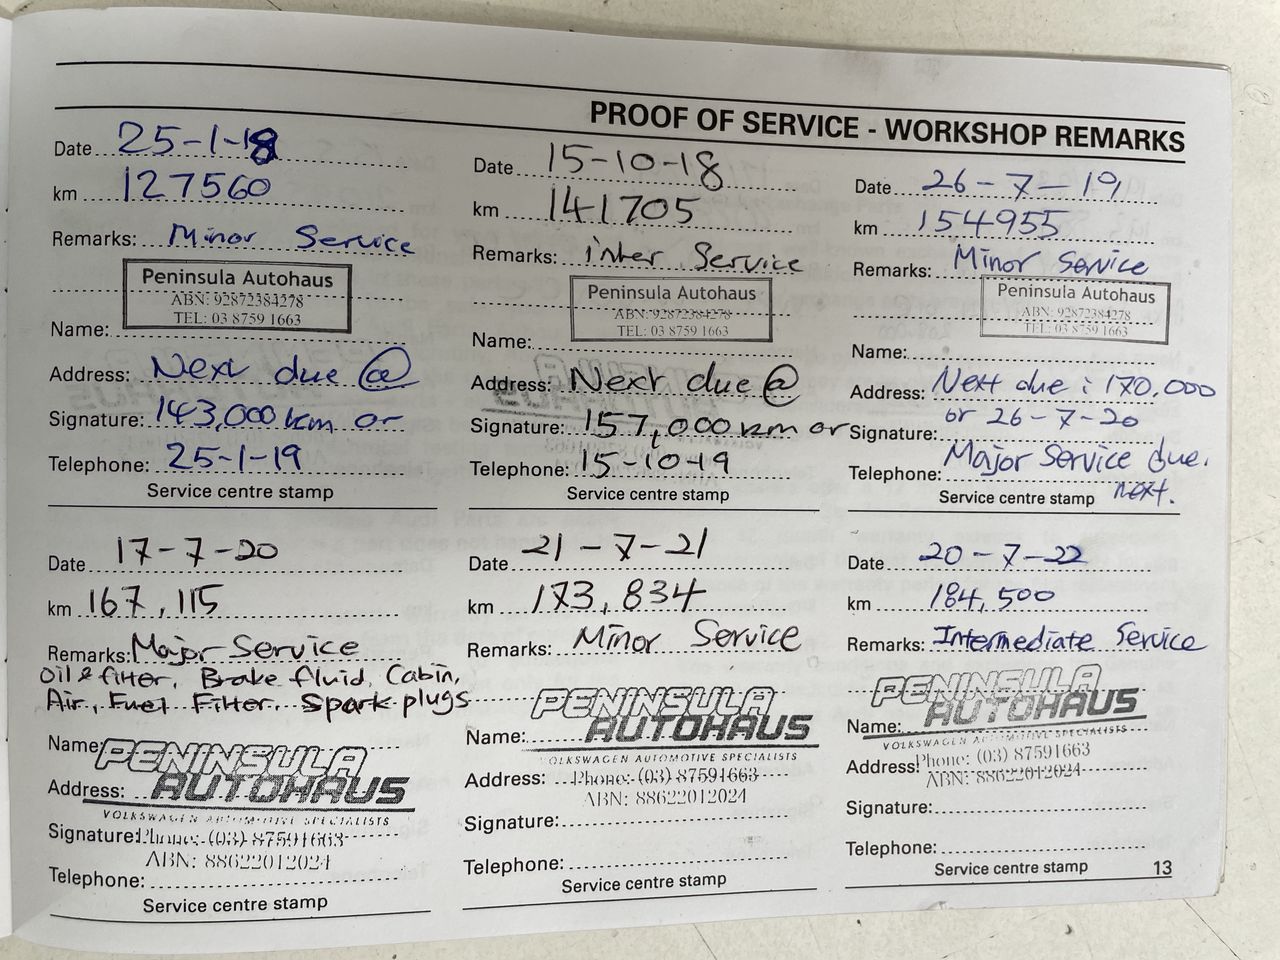 PROOF OF SERVICE - WORKSHOP REMARKS
Date 25-1-18
km 127560
Remarks: Minor Service
Peninsula Autohaus
ABN: 92872384278
TEL: 03 8759 1663
Name:
Address: Next due @
Signature: 143,000 km or
Telephone: 25-1-19
Service centre stamp
Date 15-10-18
km 141705
Remarks: inter Service
Peninsula Autohaus
ABN: 92872384278
TEL: 03 8759 1663
Name:
Address: Next due @
Signature: 157,000 km or
Telephone: 15-10-19
Service centre stamp
Date 26-7-19
km 154955
Remarks: Minor Service
Peninsula Autohaus
ABN: 92872384278
TEL: 03 8759 1663
Name:
Address: Next due : 170,000
or 26-7-20
Signature:
Major Service due.
Telephone:
next.
Service centre stamp
Date 17-7-20
km 167,115
Remarks: Major Service
Oil & filter, Brake fluid, Cabin,
Air, Fuel Filter, Spark plugs
Name:
PENINSULA
Address: AUTOHAUS
VOLKSWAGEN AUTOMOTIVE SPECIALISTS
Signature: Phone: (03) 87591663
ABN: 88622012024
Telephone:
Service centre stamp
Date 21-7-21
km 173,834
Remarks: Minor Service
PENINSULA
Name: AUTOHAUS
VOLKSWAGEN AUTOMOTIVE SPECIALISTS
Address: Phone: (03) 87591663
ABN: 88622012024
Signature:
Telephone:
Service centre stamp
Date 20-7-22
km 184,500
Remarks: Intermediate Service
PENINSULA
Name: AUTOHAUS
VOLKSWAGEN AUTOMOTIVE SPECIALISTS
Address: Phone: (03) 87591663
ABN: 88622012024
Signature:
Telephone:
Service centre stamp
13